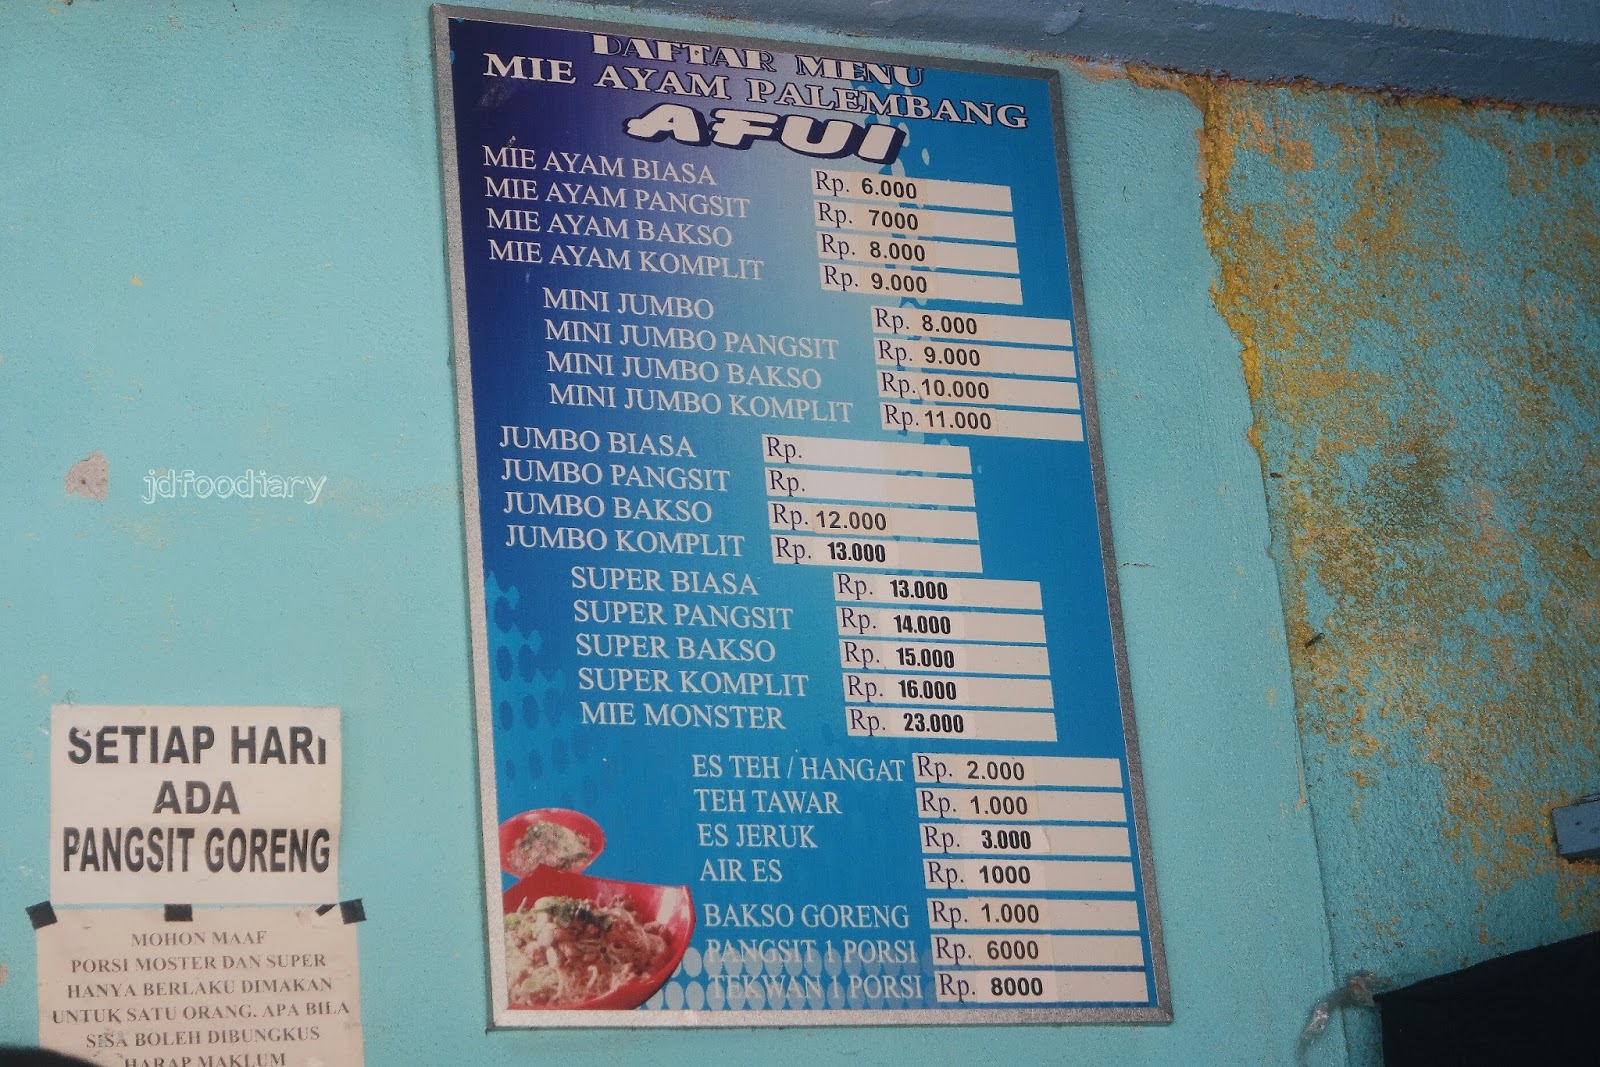 DAFTAR MENU
MIE AYAM PALEMBANG
AFUI
MIE AYAM BIASA Rp. 6.000
MIE AYAM PANGSIT Rp. 7000
MIE AYAM BAKSO Rp. 8.000
MIE AYAM KOMPLIT Rp. 9.000
MINI JUMBO Rp. 8.000
MINI JUMBO PANGSIT Rp. 9.000
MINI JUMBO BAKSO Rp. 10.000
MINI JUMBO KOMPLIT Rp. 11.000
JUMBO BIASA Rp.
JUMBO PANGSIT Rp.
JUMBO BAKSO Rp. 12.000
JUMBO KOMPLIT Rp. 13.000
SUPER BIASA Rp. 13.000
SUPER PANGSIT Rp. 14.000
SUPER BAKSO Rp. 15.000
SUPER KOMPLIT Rp. 16.000
MIE MONSTER Rp. 23.000
ES TEH / HANGAT Rp. 2.000
TEH TAWAR Rp. 1.000
ES JERUK Rp. 3.000
AIR ES Rp. 1000
BAKSO GORENG Rp. 1.000
PANGSIT 1 PORSI Rp. 6000
TEKWAN 1 PORSI Rp. 8000
jdfoodiary
SETIAP HARI
ADA
PANGSIT GORENG
MOHON MAAF
PORSI MOSTER DAN SUPER
HANYA BERLAKU DIMAKAN
UNTUK SATU ORANG. APA BILA
SISA BOLEH DIBUNGKUS
HARAP MAKLUM